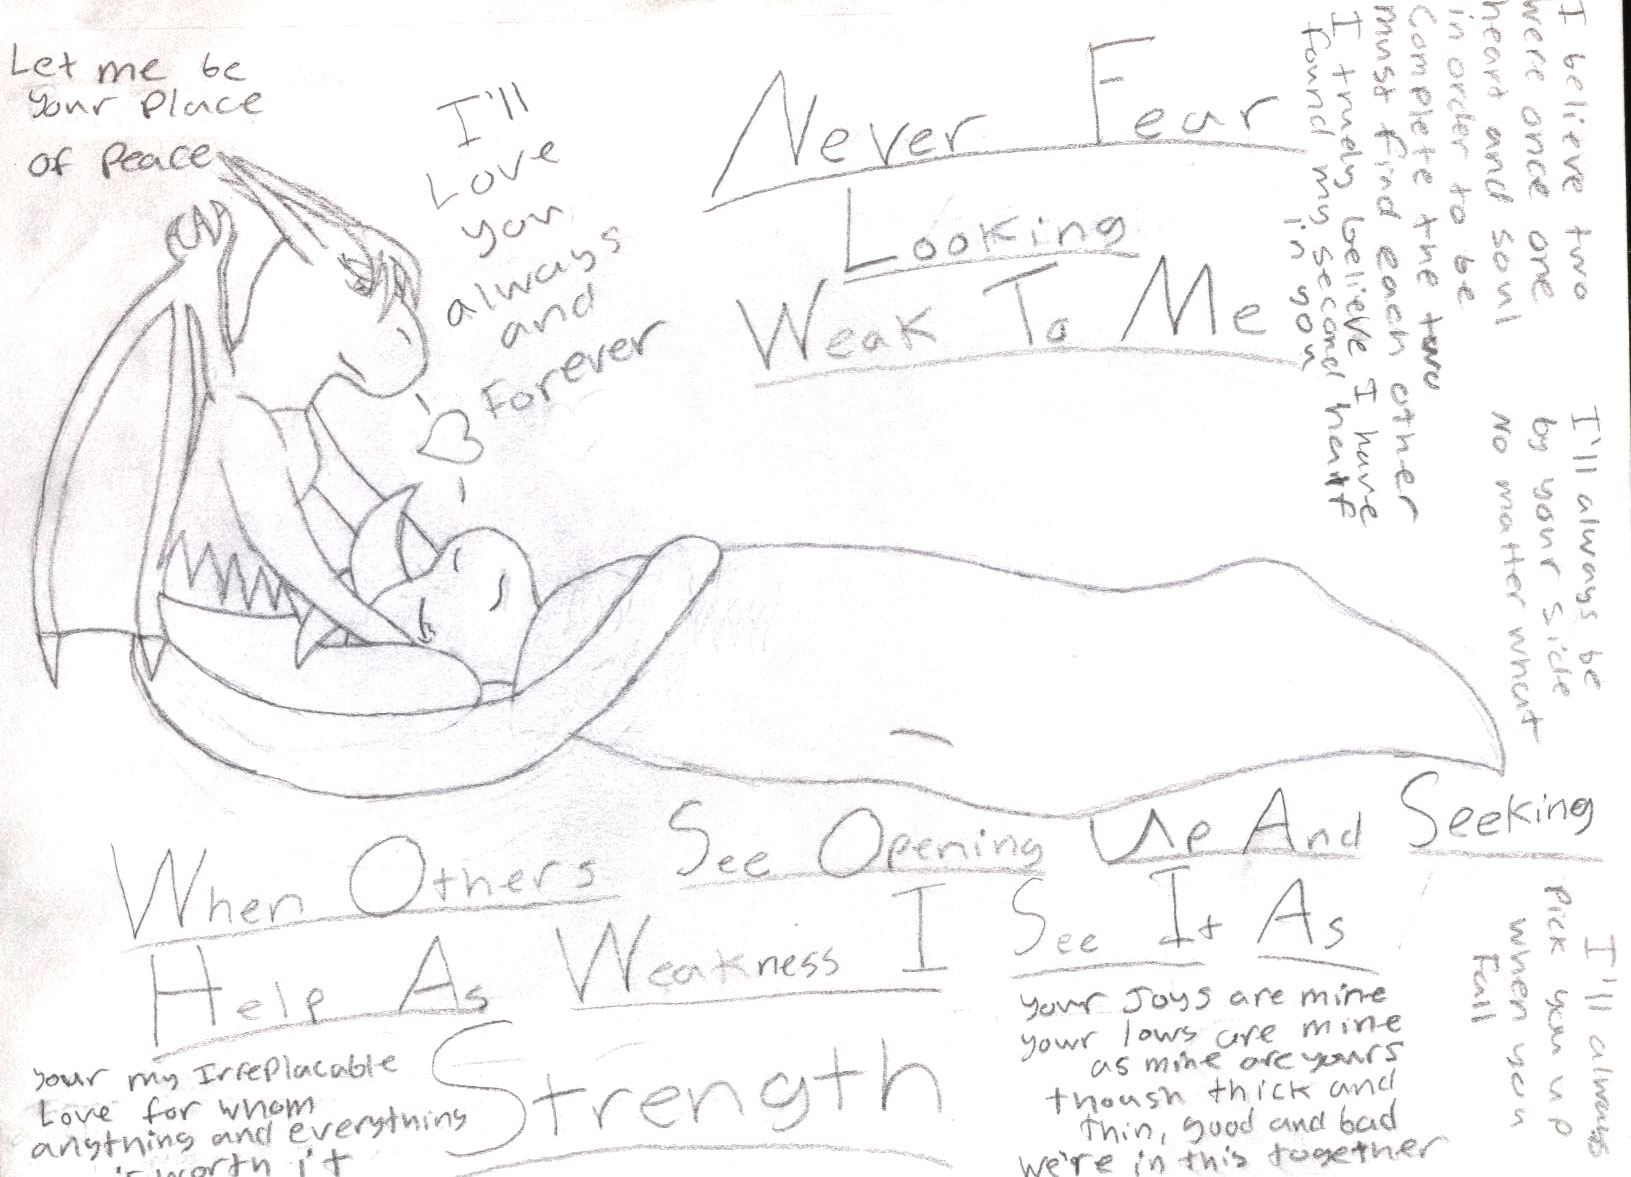 Let me be
your place
of peace
I'll
Love
you
always
and
Forever
Never Fear
Looking
Weak To Me
I believe two
were once one
heart and soul
in order to be
complete the two
must find each other
I truely believe I have
found my second half
in you
I'll always be
by your side
No matter what
When Others See Opening Up And Seeking
Help As Weakness I See It As
Strength
I'll always
Pick you up
when you
Fall
your my Irreplacable
Love for whom
anything and everything
is worth it
your Joys are mine
your lows are mine
as mine are yours
though thick and
thin, good and bad
we're in this together